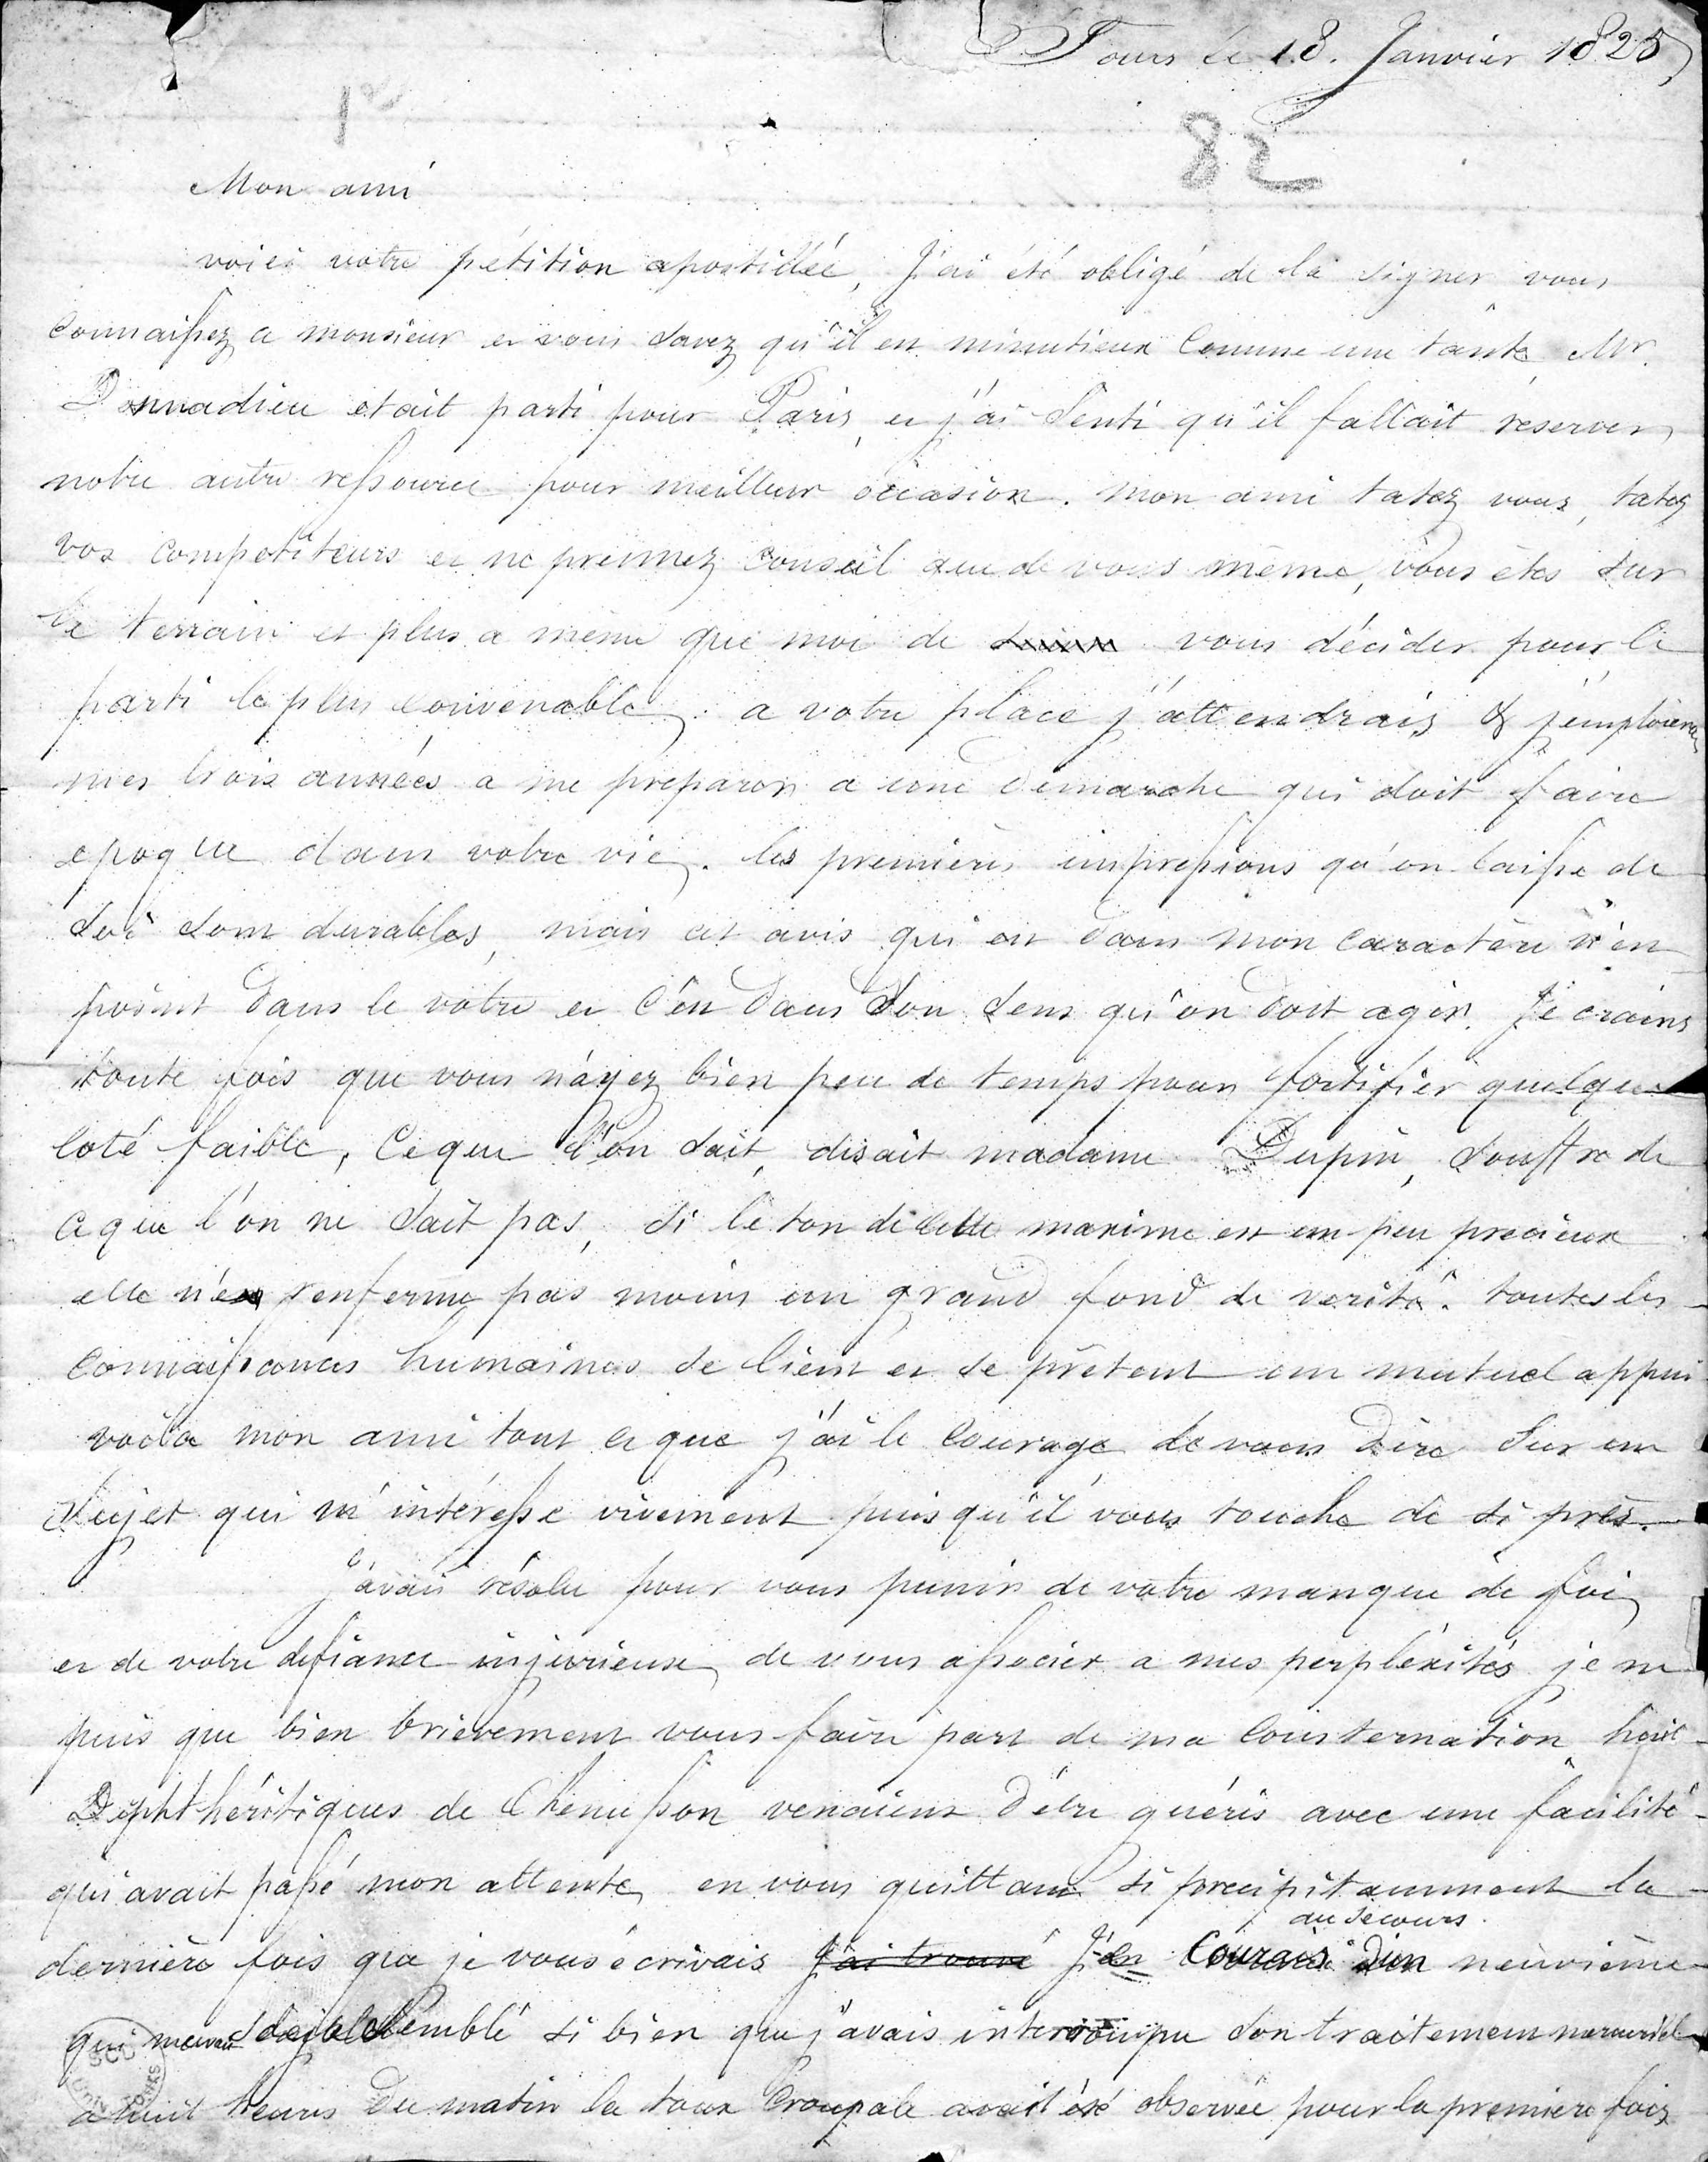 Tours le 18. Janvier 1825
1er
82
Mon ami
voici votre pétition apostillée, J'ai été obligé de la signer vous
connaissez ce monsieur et vous savez qu'il est minutieux comme une tante, Mr.
Donnadieu etait parti pour Paris, et j'ai senti qu'il fallait reserver
notre autre ressource pour meilleur occasion. mon ami tatez vous, tatez
vos competiteurs et ne prennez conseil que de vous même, vous êtes sur
le terrain et plus a même que moi de vous décider pour le
parti le plus convenable. a votre place j'attendrais & j'emploierais
mes trois années a me preparer a une demarche qui doit faire
epoque dans votre vie. les premières impressions qu'on laisse de
soi sont durables, mais cet avis qui est dans mon caractère n'est
point dans le votre et c'est dans son sens qu'on doit agir. Je crains
toute fois que vous n'ayez bien peu de temps pour fortifier quelque
coté faible. Ce que l'on sait, disait madame Dupin, souffre de
ce que l'on ne sait pas, si le ton de cette maxime est un peu precieux
elle n'en renferme pas moins un grand fond de verité. toutes les
connaissances humaines se lient et se prêtent un mutuel appui
voila mon ami tout ce que j'ai le courage de vous dire sur un
sujet qui m'intéresse vivement puisqu'il vous touche de si près.
j'avais résolu pour vous punir de votre manque de foi
et de votre defiance injurieuse de vous associer a mes perpléxités je ne
puis que bien brievement vous faire part de ma consternation huit
Diphthéritiques de Chenusson venaient d'être guéris avec une facilité
qui avait passé mon attente, en vous quittant si precipitamment la
au secours
dernière fois que je vous écrivais J'ai trouvé J'en courais d'un neuvième
qui semblé si bien que j'avais interrompu son traitement mercuriel
a huit heures du matin la toux croupale avait été observée pour la premiere fois